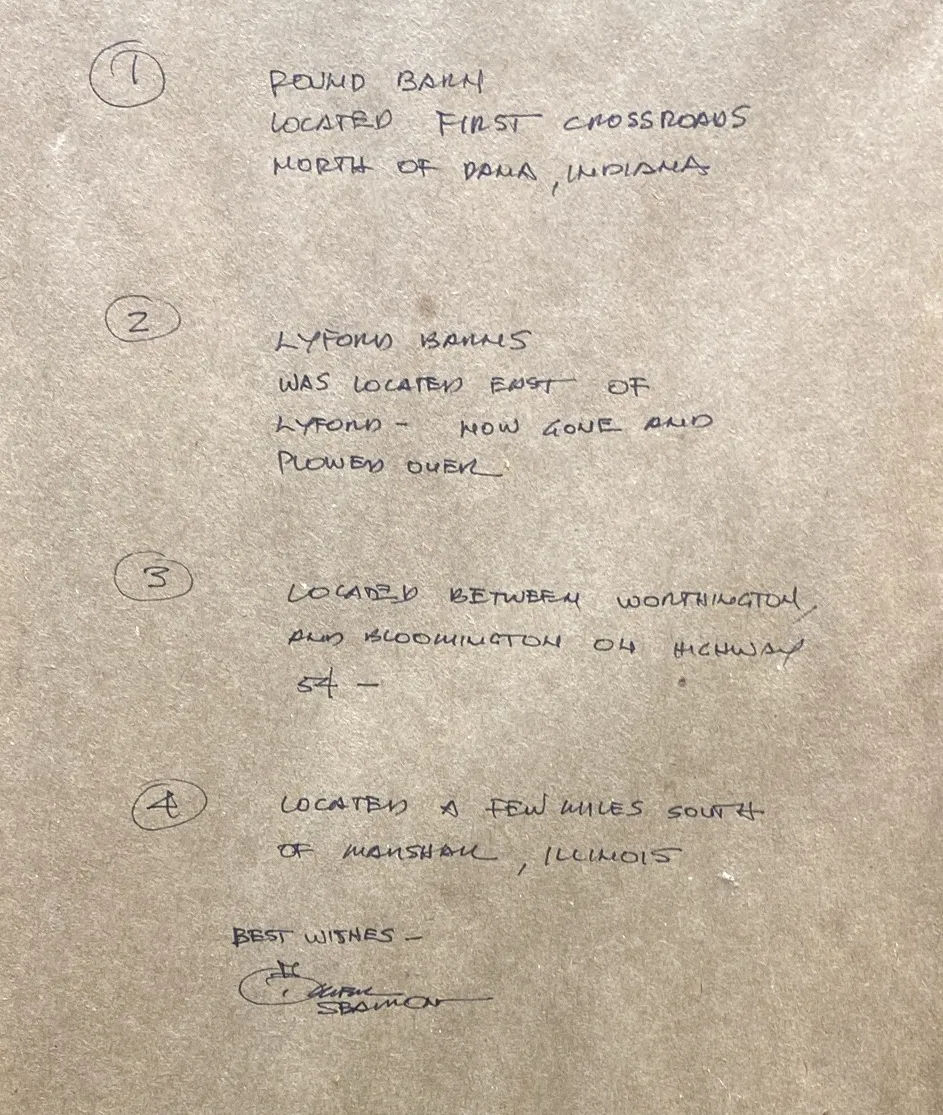 1
ROUND BARN
LOCATED FIRST CROSSROADS
NORTH OF DANA, INDIANA
2
LYFORD BARNS
WAS LOCATED EAST OF
LYFORD - NOW GONE AND
PLOWED OVER
3
LOCATED BETWEEN WORTHINGTON,
AND BLOOMINGTON ON HIGHWAY
54 -
4
LOCATED A FEW MILES SOUTH
OF MARSHALL, ILLINOIS
BEST WISHES -